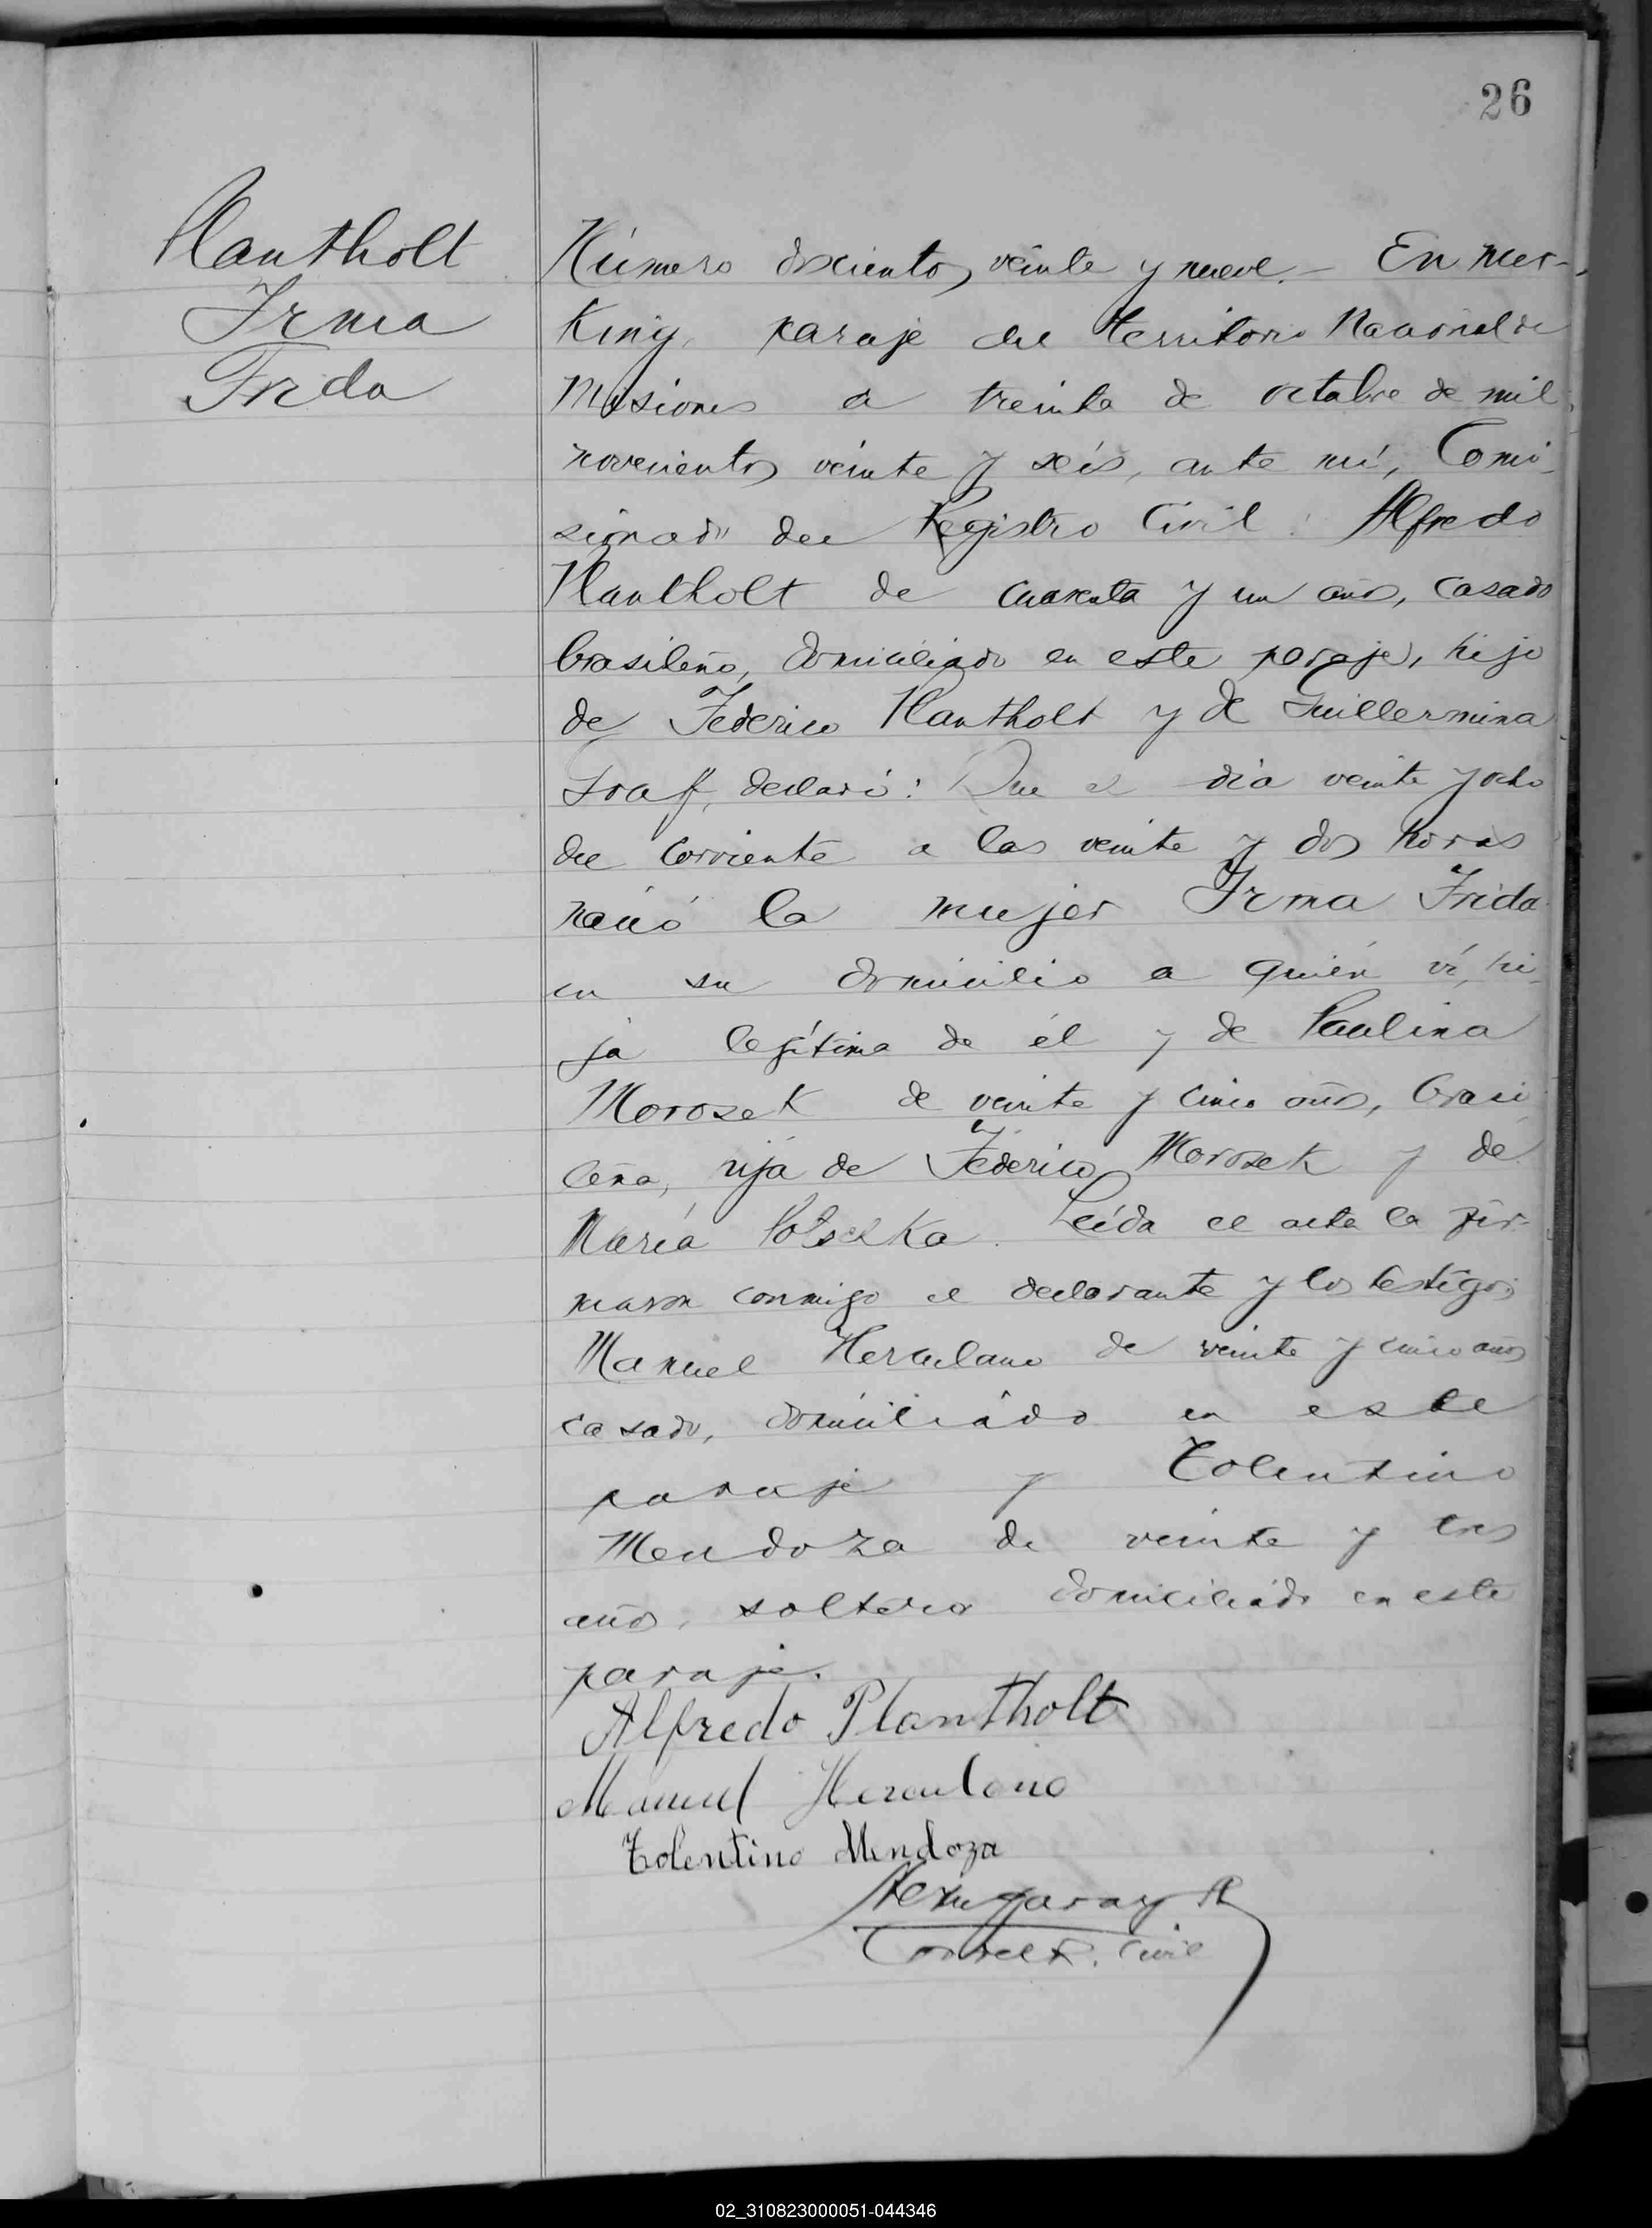 26
Plantholt
Irma
Frida
Número doscientos veinte y nueve. – En Mer-
King, paraje del Territorio Nacional de
Misiones a treinta de octubre de mil
novecientos veinte y seis, ante mí, Comi-
sionado del Registro Civil: Alfredo
Plantholt de cuarenta y un años, casado
brasileño, domiciliado en este paraje, hijo
de Federico Plantholt y de Guillermina
Graf, declaró: Que el día veinte y ocho
del corriente a las veinte y dos horas
nació la mujer Irma Frida
en su domicilio a quién ví, hi-
ja legítima de él y de Paulina
Morosek de veinte y cinco años, brasi
leña, hija de Federico Morosek y de
María Potselka. Leída el acta la fir-
maron conmigo el declarante y los testigos
Manuel Herculano de veinte y cinco años
casado, domiciliado en este
paraje y Tolentino
Mendoza de veinte y tres
años, soltero domiciliado en este
paraje.
Alfredo Plantholt
Manuel Herculano
Tolentino Mendoza
R. Civil
02_310823000051-044346